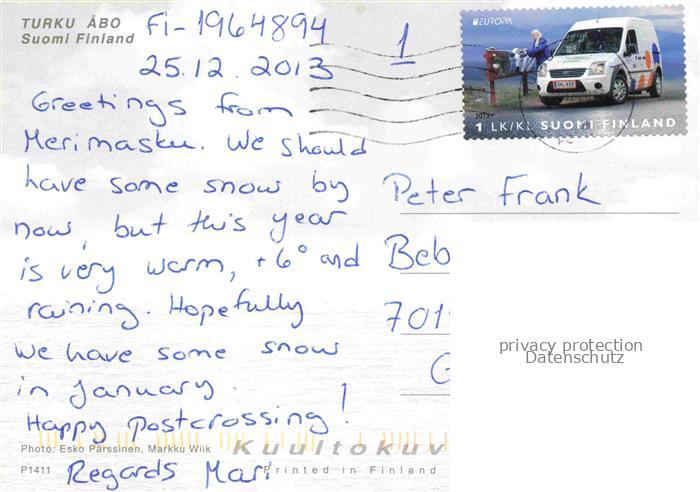 TURKU ÅBO
Suomi Finland
FI-1964894
25.12.2013
Greetings from
Merimasku. We should
have some snow by
now, but this year
is very warm, +6° and
raining. Hopefully
we have some snow
in January.
Happy Postcrossing!
Regards Mari
Photo: Esko Pärssinen, Markku Wiik
P1411
Kuultokuv
Printed in Finland
1
EUROPA
2013
1 LK/KL SUOMI FINLAND
Peter Frank
Beb
701
G
privacy protection
Datenschutz